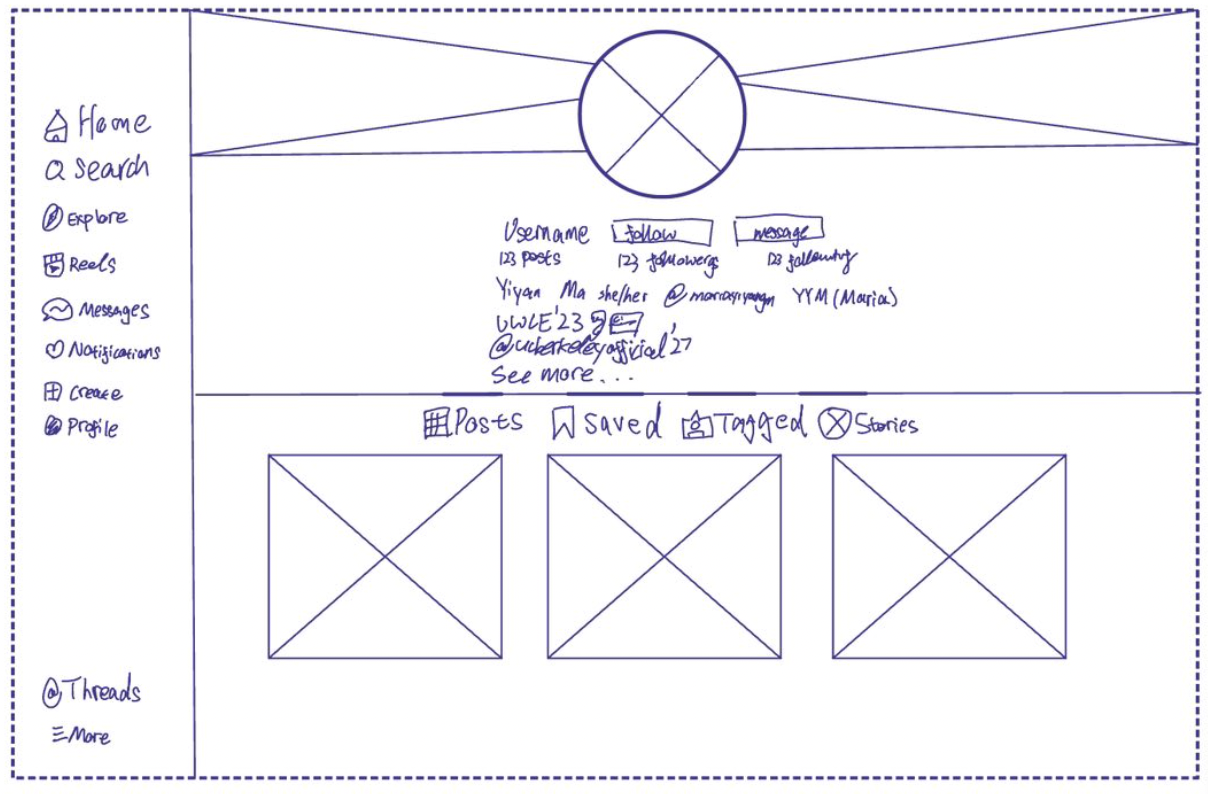 Home
Search
Explore
Reels
Messages
Notifications
Create
Profile
Threads
More
Username follow message
123 posts 123 followers 123 following
Yiyan Ma she/her YYM (Maria)
UWCE'23
@ucberkeleyofficial'27
See more...
Posts Saved Tagged Stories